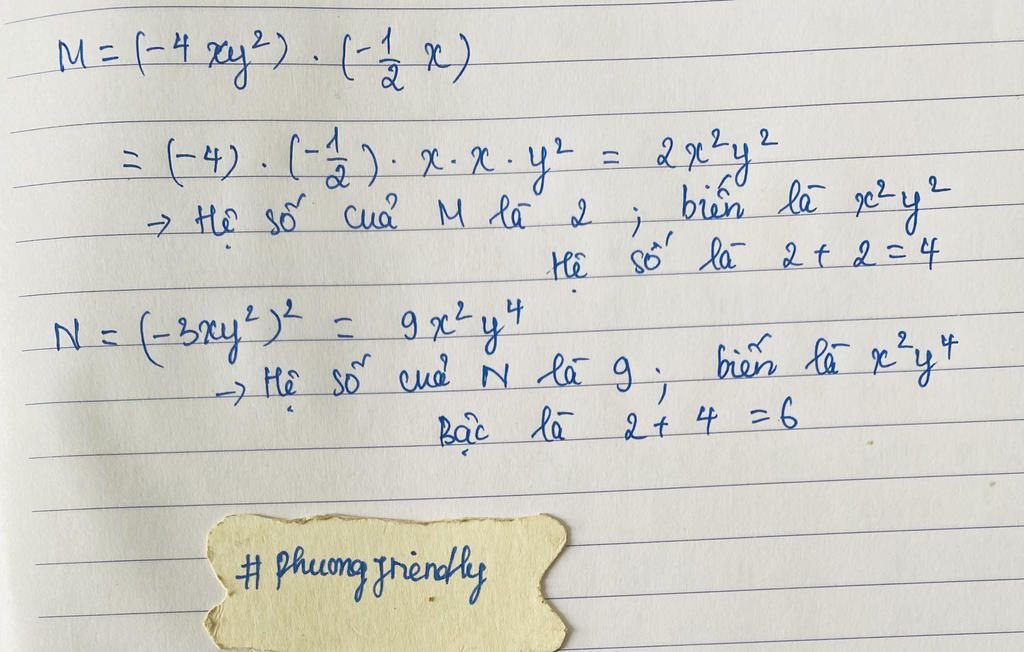 M = (-4 xy²) . (-1/2 x)
= (-4) . (-1/2) . x . x . y² = 2x²y²
→ Hệ số của M là 2 ; biến là x²y²
Hệ số là 2 + 2 = 4
N = (-3xy²)² = 9x²y⁴
→ Hệ số của N là 9 ; biến là x²y⁴
Bậc là 2 + 4 = 6
# phuongfriendly